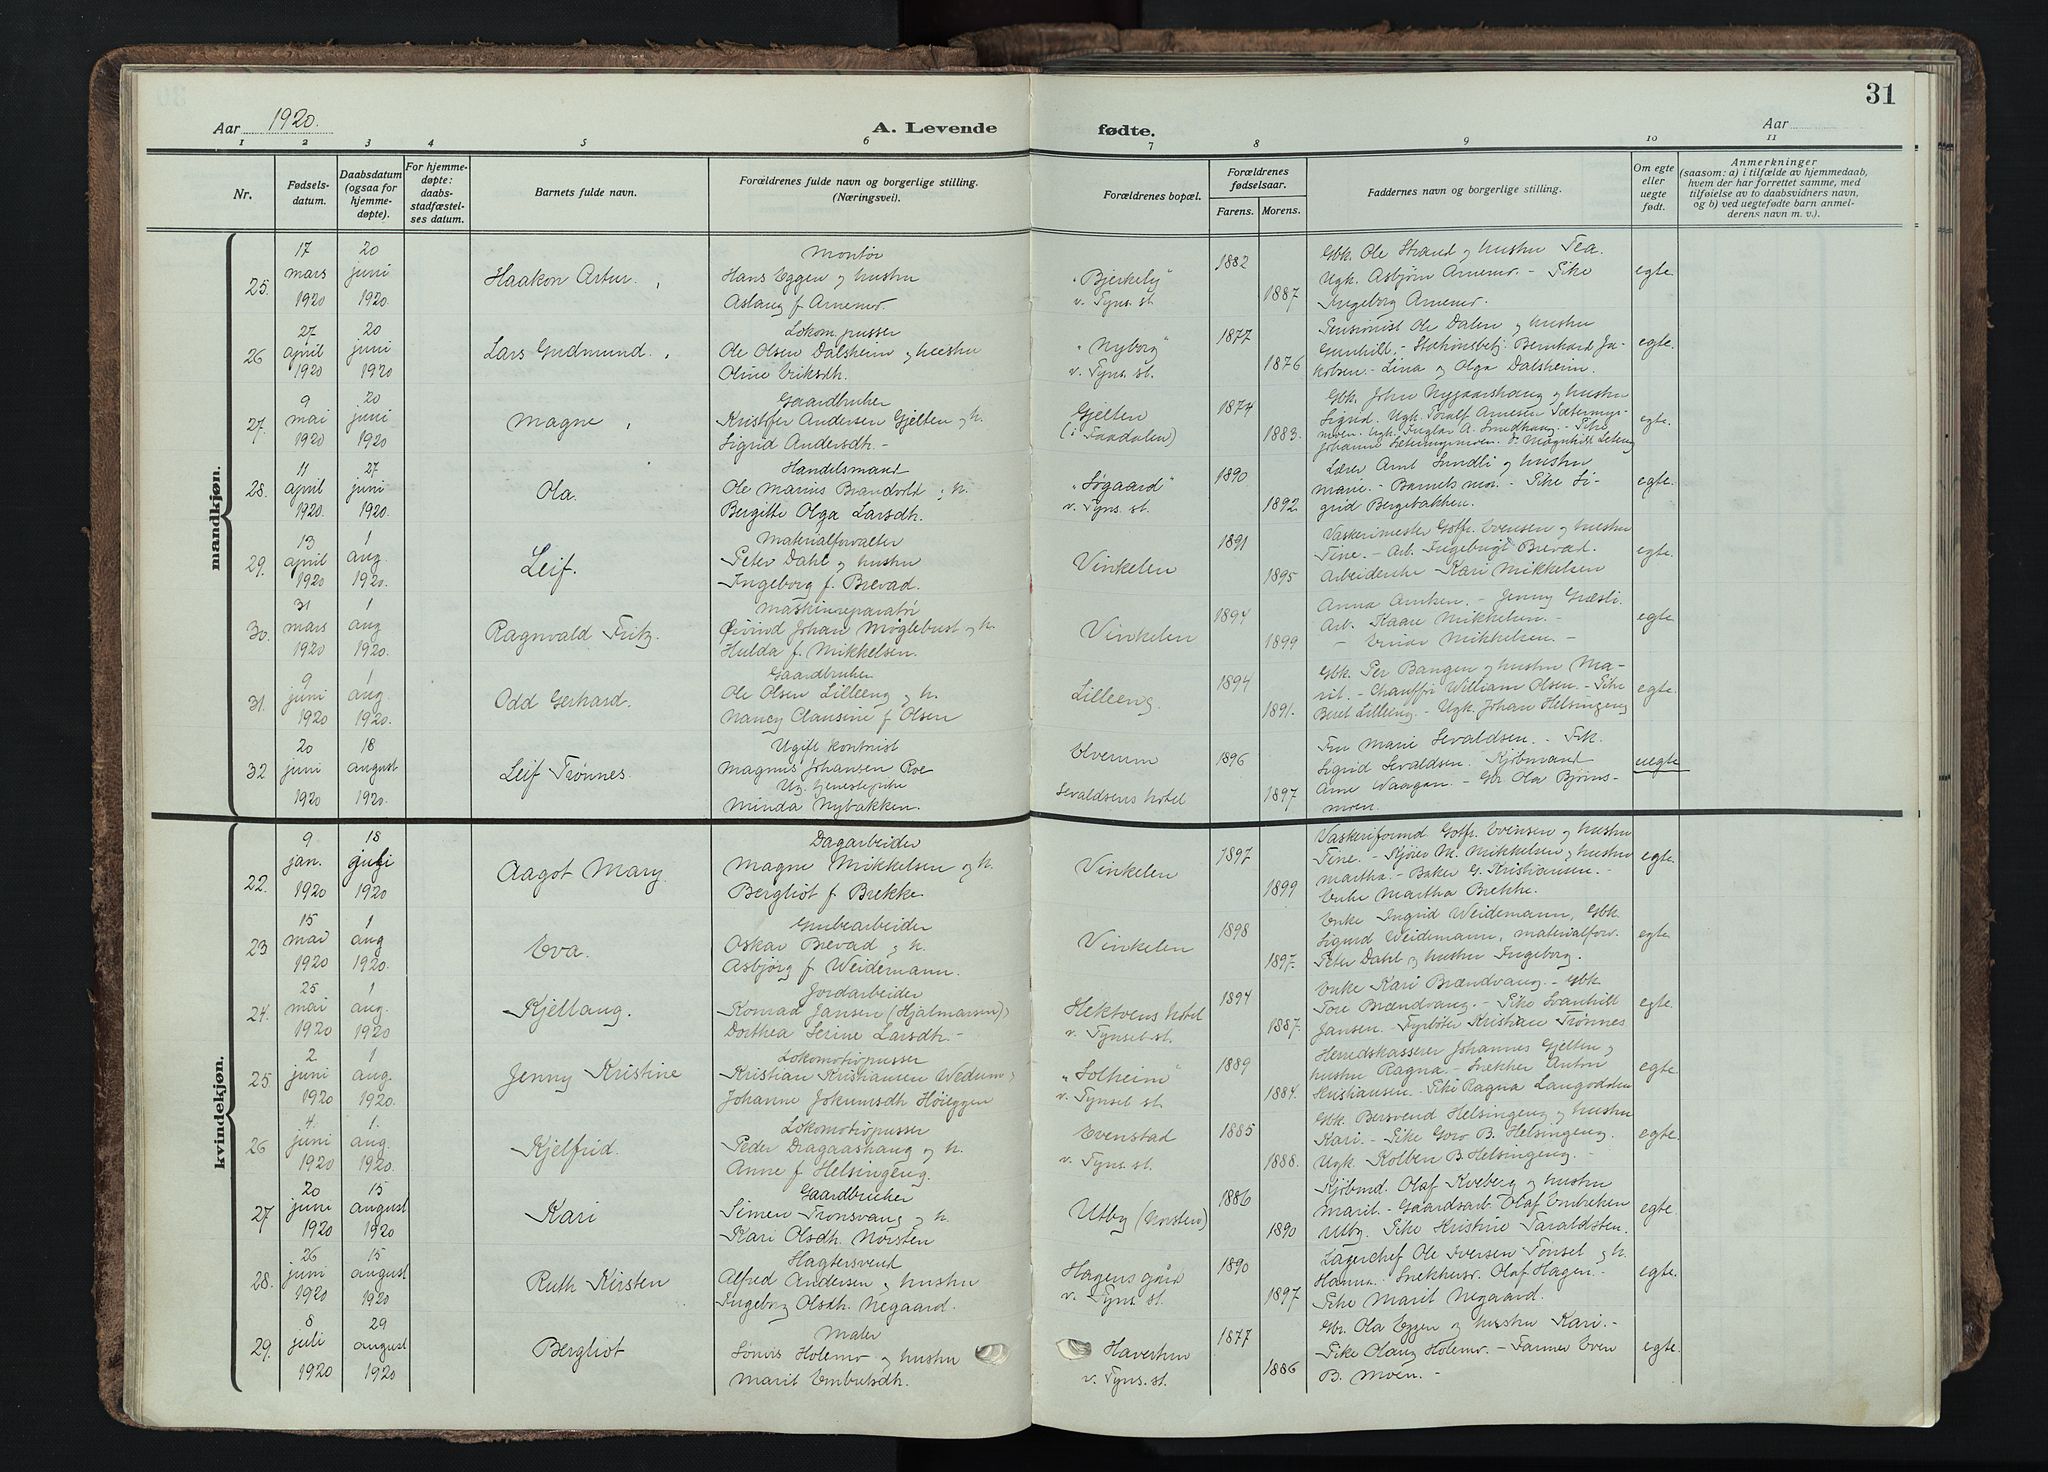 31
Aar 1920.
A. Levende fødte.
Aar
1 2 3 4 5 6 7 8 9 10 11
Nr.
Fødsels-
datum.
Daabsdatum
(ogsaa for
hjemme-
døpte).
For hjemme-
døpte:
daabs-
stadfæstel-
ses datum.
Barnets fulde navn.
Forældrenes fulde navn og borgerlige stilling.
(Næringsvei).
Forældrenes bopæl.
Forældrenes
fødselsaar.
Farens. Morens.
Faddernes navn og borgerlige stilling.
Om egte
eller
uegte
født.
Anmerkninger
(saasom: a) i tilfælde av hjemmedaab,
hvem der har forrettet samme, med
tilføielse av to daabsvidners navn,
og b) ved uegtefødte barn anmel-
derens navn m. v.).
mandkjøn.
25. 17 mars 1920 20 juni 1920. Haakon Artur.
Montør
Hans Eggen og hustru
Aslaug f. Arnemo
"Bjerkely"
v. Tyns. st.
1882 1887
Gbk. Ole Strand og hustru Tea.
Ugk. Asbjørn Arnemo. - Pike
Ingeborg Arnemo.
egte
26 27 april 1920 20 juni 1920 Lars Gudmund.
Lokom. pusser
Ole Olsen Dalsheim og hustru
Oline Eriksdh.
"Nyborg"
v. Tyns. st.
1877 1876
Pensionist Ole Dalen og hustru
Gunhild, - Stationsbetj. Bernhard Ja-
kobsen. - Lina og Olga Dalsheim.
egte.
27. 9 mai 1920 20 juni 1920 Magne
Gaardbruker
Kristofer Andersen Gjelten og h.
Sigrid Andersdh -
Gjelten
(i Faadalen)
1874 1883.
Gbk. John Nygaardshaug og hustru
Sigrid. Ugk. Toralf Arnesen Sætermys-
egte.
28. 11 april 1920 27 juni 1920. Ola.
Handelsmand
Ole Marius Brandvold og h.
Bergitte Olga Larsdh.
"Søgaard"
v. Tyns. st.
1890 1892
Lærer Arnt Sundli og hustru
Marie - Barnets mor. - Pike Si-
grid Bergebakken.
egte.
29. 13 april 1920 1 aug. 1920. Leif.
Materialforvalter
Peter Dahl og hustru
Ingeborg f. Brevad.
Vinkelen
1891 1895
Vaskerimester Gotfr. Evensen og hustru
Tine. - Arb. Ingebrigt Brevad.
Arbeiderske Kari Mikkelsen
egte.
30. 31 mars 1920 1 aug 1920 Ragnvald Fritz.
Maskinreparatør
Øivind Johan Møglebust og h.
Hulda f. Mikkelsen.
Vinkelen
1894 1899
Anna Aniken. - Jenny Græsli.
Arb. Kaare Mikkelsen. -
- Einar Mikkelsen. -
egte.
31. 9 juni 1920 1 aug. 1920. Odd Gerhard.
Gaardbruker
Ole Olsen Lilleeng og h.
Nancy Clausine f. Olsen
Lilleeng.
1894 1891.
Gbk. Per Bangen og hustru Ma-
rit. - Chauffør William Olsen. - Pike
Beret Lilleeng - Ugk. Johan Helsingeng
egte.
32 20 juni 1920 18 august 1920. Leif Trønnes.
Ugift kontorist
Magnus Johansen Roe
Ug. tjenestepike
Minda Nybakken.
Elverum
Sevaldsens hotel
1896 1897
Fru Marie Sevaldsen. - Frk.
Sigrid Sevaldsen. Kjøbmand
Arne Waagan. - Gbr Ola Bjørns-
moen.
uegte
kvindekjøn.
22. 9 jan. 1920 18 juli 1920 Aagot Mary.
Dagarbeider
Magne Mikkelsen og h.
Bergliot f. Brekke.
Vinkelen
1897 1899
Vaskeriformd Gotfr. Evensen og hustru
Tine. - Kjører M. Mikkelsen og hustru
Martha. - Baker G. Kristiansen. -
Enke Martha Brekke.
egte.
23 15 mai 1920 1 aug 1920. Eva.
Grubearbeider
Oskar Brevad og h.
Asbjørg f. Weidemann.
Vinkelen
1898 1897.
Enke Ingrid Weidemann, Gbk.
Sigurd Weidemann, materialforv.
Peter Dahl og hustru Ingeborg.
egte.
24. 25 mai 1920 1 aug. 1920 Kjellaug.
Jordarbeider
Konrad Jansen (Hjalmarsen)
Dorthea Serine Larsdh. -
Hektoens hotel
v. Tynset st.
1894 1887.
Enke Kari Brændvang. - Gbk.
Tore Brændvang. - Pike Svanhild
Jansen. - Fyrbøter Kristian Trønnes
egte.
25. 2 juni 1920 1 aug. 1920. Jenny Kristine
Lokomotivpusser
Kristian Kristiansen Wedum
Johanne Jokumsdh Høieggen
"Solheim"
v. Tynset st.
1889 1884.
Herredskasserer Johannes Gjelten og
hustru Ragna. - Snekker Anton
Kristiansen. - Pike Ragna Langodden
egte.
26 4. juni 1920 1. aug. 1920. Kjelfrid.
Lokomotivpusser
Peder Dragaashaug og h.
Anne f. Helsingeng.
Evenstad
v. Tyns. st.
1885 1888.
Gbk. Bersvend Helsingeng og hustru
Kari. - Pike Goro B. Helsingeng.
Ugk. Kolben B. Helsingeng -
egte.
27 20 juni 1920 15 august 1920 Kari
Gaardbruker
Simen Tronsvang og h.
Kari Olsdh. Norsten
Utby (Norsten)
1886 1890
Kjøbmd. Olaf Kveberg og hustru
Marit. - Gaardsarb. Olaf Embreken
Utby. Pike Kristine Taraldsten.
egte.
28. 26 juni 1920 15 august 1920 Ruth Kirsten
Alfred Andersen og hustru
Ingeborg Olsdh. Negaard.
Hagens gård
v. Tyns. st.
1890 1897
Lagerchef Ole Iversen Tønset og h.
Hanna. Snekkersv. Olaf Hagen. -
Pike Marit Negaard.
egte.
29. 8 juli 1920 29 august 1920 Bergliot
Maler
Holemo og hustru
Marit Embretsdh.
v. Tyns. st.
1877 1886
Gbr. Ola Eggen og hustru Kari. -
Pike Olaug Holemo. - Farmer Even
B. Moen. -
egte.